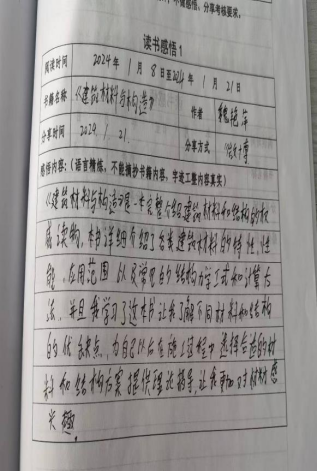 不做感悟,分享考核要求。
读书感悟1
阅读时间 2024年1月8日至2024年1月21日
书籍名称 《建筑材料与构造》 作者 魏艳萍
分享时间 2024.1.21. 分享方式
感悟内容:(语言精炼,不能摘抄书籍内容,字迹工整内容真实)
《建筑材料与构造》是一本完整介绍建筑材料和结构的权
威读物,本书详细介绍了各类建筑材料的特性、性
能、应用范围以及常见的结构形式和计算方
法,并且我学习了这本书让我了解不同材料和结构
的优缺点,为自己以后在施工过程中选择合适的材
料和结构方案提供理论指导,让我更加对材料感
兴趣。